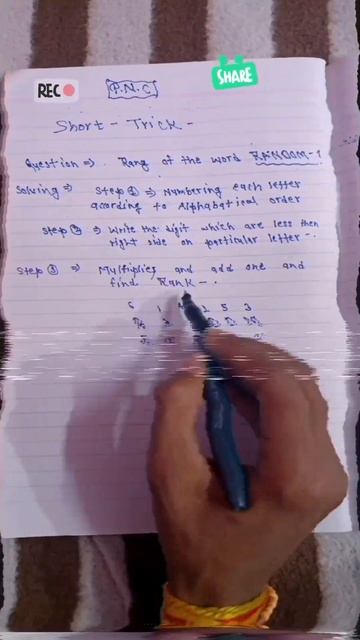 REC
SHARE
P.N.C
Short - Trick -
Question ⇒ Rang of the word RANDOM - ?
Solving ⇒ Step ① ⇒ Numbering each letter
according to Alphabatical order
step ② ⇒ Write the digit which are less then
right side on particular letter -.
Step ③ ⇒ Multiplies and add one and
find Rank -.
6 1 2 5 3